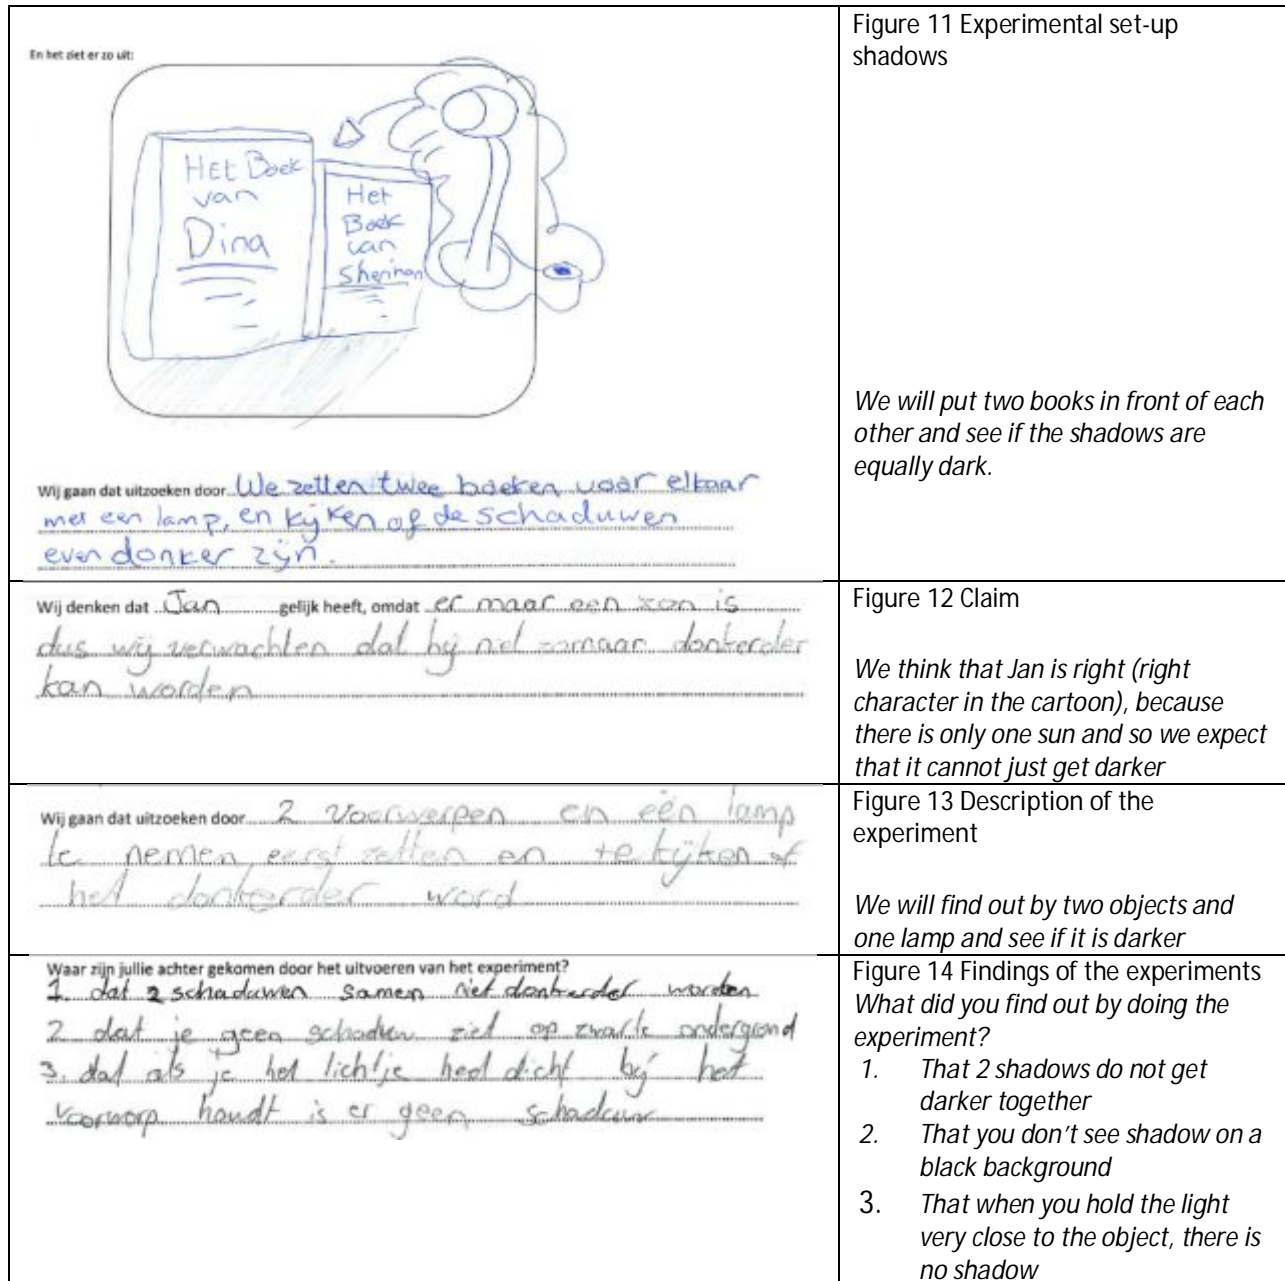 En het ziet er zo uit:
HEt Boek
van
Dina
Het
Boek
van
Sherihan
Wij gaan dat uitzoeken door We zetten twee boeken voor elkaar
met een lamp, en kijken of de schaduwen
even donker zijn.
Figure 11 Experimental set-up
shadows
We will put two books in front of each
other and see if the shadows are
equally dark.
Wij denken dat Jan gelijk heeft, omdat er maar een zon is
dus wij verwachten dat hij niet zomaar donkerder
kan worden
Figure 12 Claim
We think that Jan is right (right
character in the cartoon), because
there is only one sun and so we expect
that it cannot just get darker
Wij gaan dat uitzoeken door 2 Voorwerpen en één lamp
te nemen eerst zetten en te kijken of
het donkerder word
Figure 13 Description of the
experiment
We will find out by two objects and
one lamp and see if it is darker
Waar zijn jullie achter gekomen door het uitvoeren van het experiment?
1. dat 2 schaduwen samen niet donkerder worden
2 dat je geen schaduw ziet op zwarte ondergrond
3. dat als je het lichtje heel dicht bij het
voorworp houdt is er geen schaduw
Figure 14 Findings of the experiments
What did you find out by doing the
experiment?
1. That 2 shadows do not get
darker together
2. That you don't see shadow on a
black background
3. That when you hold the light
very close to the object, there is
no shadow